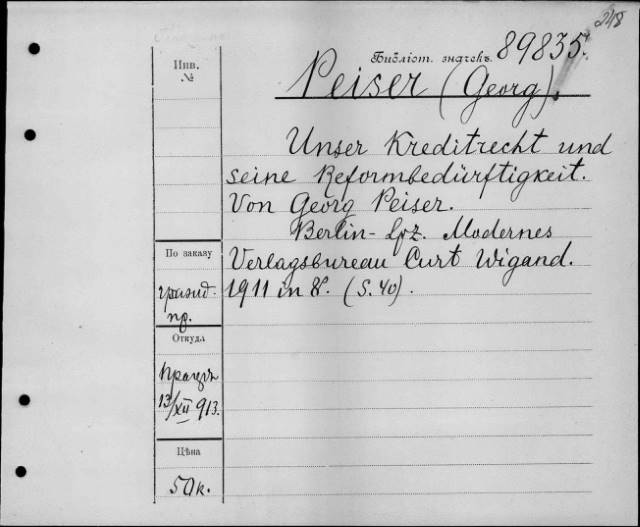 218
Библіот. значекъ. 89835.
Инв.
№
Peiser (Georg).
Unser Kreditrecht und
seine Reformbedürftigkeit.
Von Georg Peiser.
Berlin-Lpz. Modernes
По заказу
Verlagsbureau Curt Wigand.
1911 in 8°. (S. 40).
пр.
Откуда
13/XII 913.
Цѣна
50к.